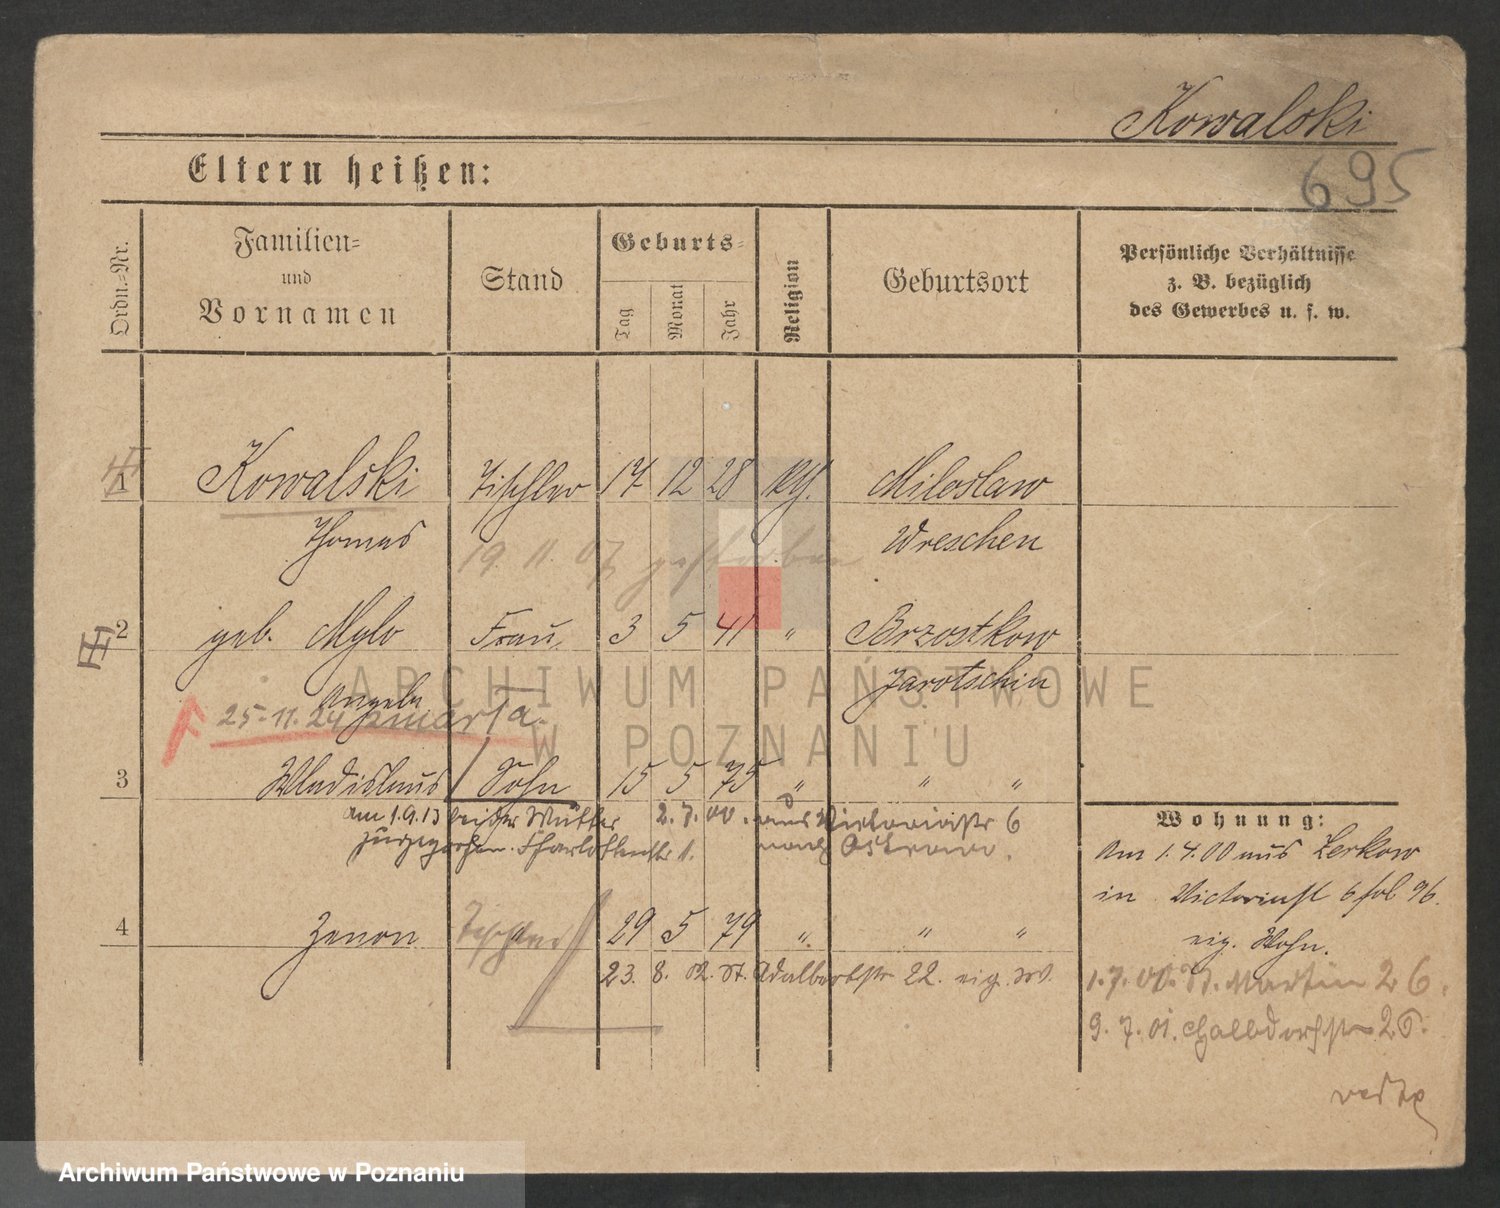 Kowalski
695
Eltern heißen:
Ordn.=Nr.
Familien=
und
Vornamen
Stand
Geburts=
Tag
Monat
Jahr
Religion
Geburtsort
Persönliche Verhältnisse
z. B. bezüglich
des Gewerbes u. s. w.
1 Kowalski Tischler 17 12 28 kth. Miloslaw
Thomas Wreschen
19. 11. 07 gestorben
2 geb. Mylo Frau 3 5 41 " Brzostkow
Angela Jarotschin
25.11.24 zmarła.
ARCHIWUM PAŃSTWOWE
W POZNANIU
3 Wladislaus Sohn 15 5 75 " " "
am 1.9.13 bei der Mutter 2.7.00. aus Victoriastr 6
zugezogen. 11. nach Ostrowo.
4 Zenon 29 5 79 " " "
23. 8. 02. St. Adalbertstr 22. eig. W.
Wohnung:
Am 1.4.00 aus Zerkow
in Victoriast 6 fol 96.
eig. Wohn.
1.7.00. St. Martin 26.
9.7.01. Halbdorfstr 26.
verte
Archiwum Państwowe w Poznaniu